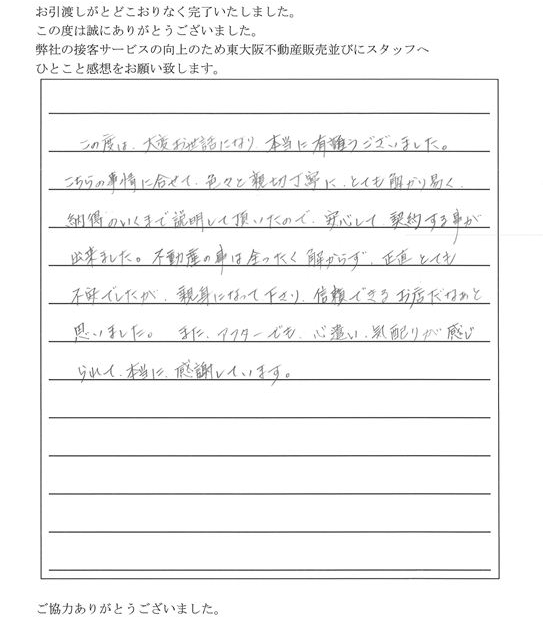 お引渡しがとどこおりなく完了いたしました。
この度は誠にありがとうございました。
弊社の接客サービスの向上のため東大阪不動産販売並びにスタッフへ
ひとこと感想をお願い致します。
この度は、大変お世話になり、本当に有難うございました。
こちらの事情に合せて、色々と親切丁寧に、とても解かり易く、
納得のいくまで説明して頂いたので、安心して 契約する事が
出来ました。不動産の事は全ったく解からず、正直とても
不安でしたが、親身になって下さり、信頼できるお店だなぁと
思いました。 また、アフターでも、心遣い、気配りが感じ
られて、本当に、感謝しています。
ご協力ありがとうございました。